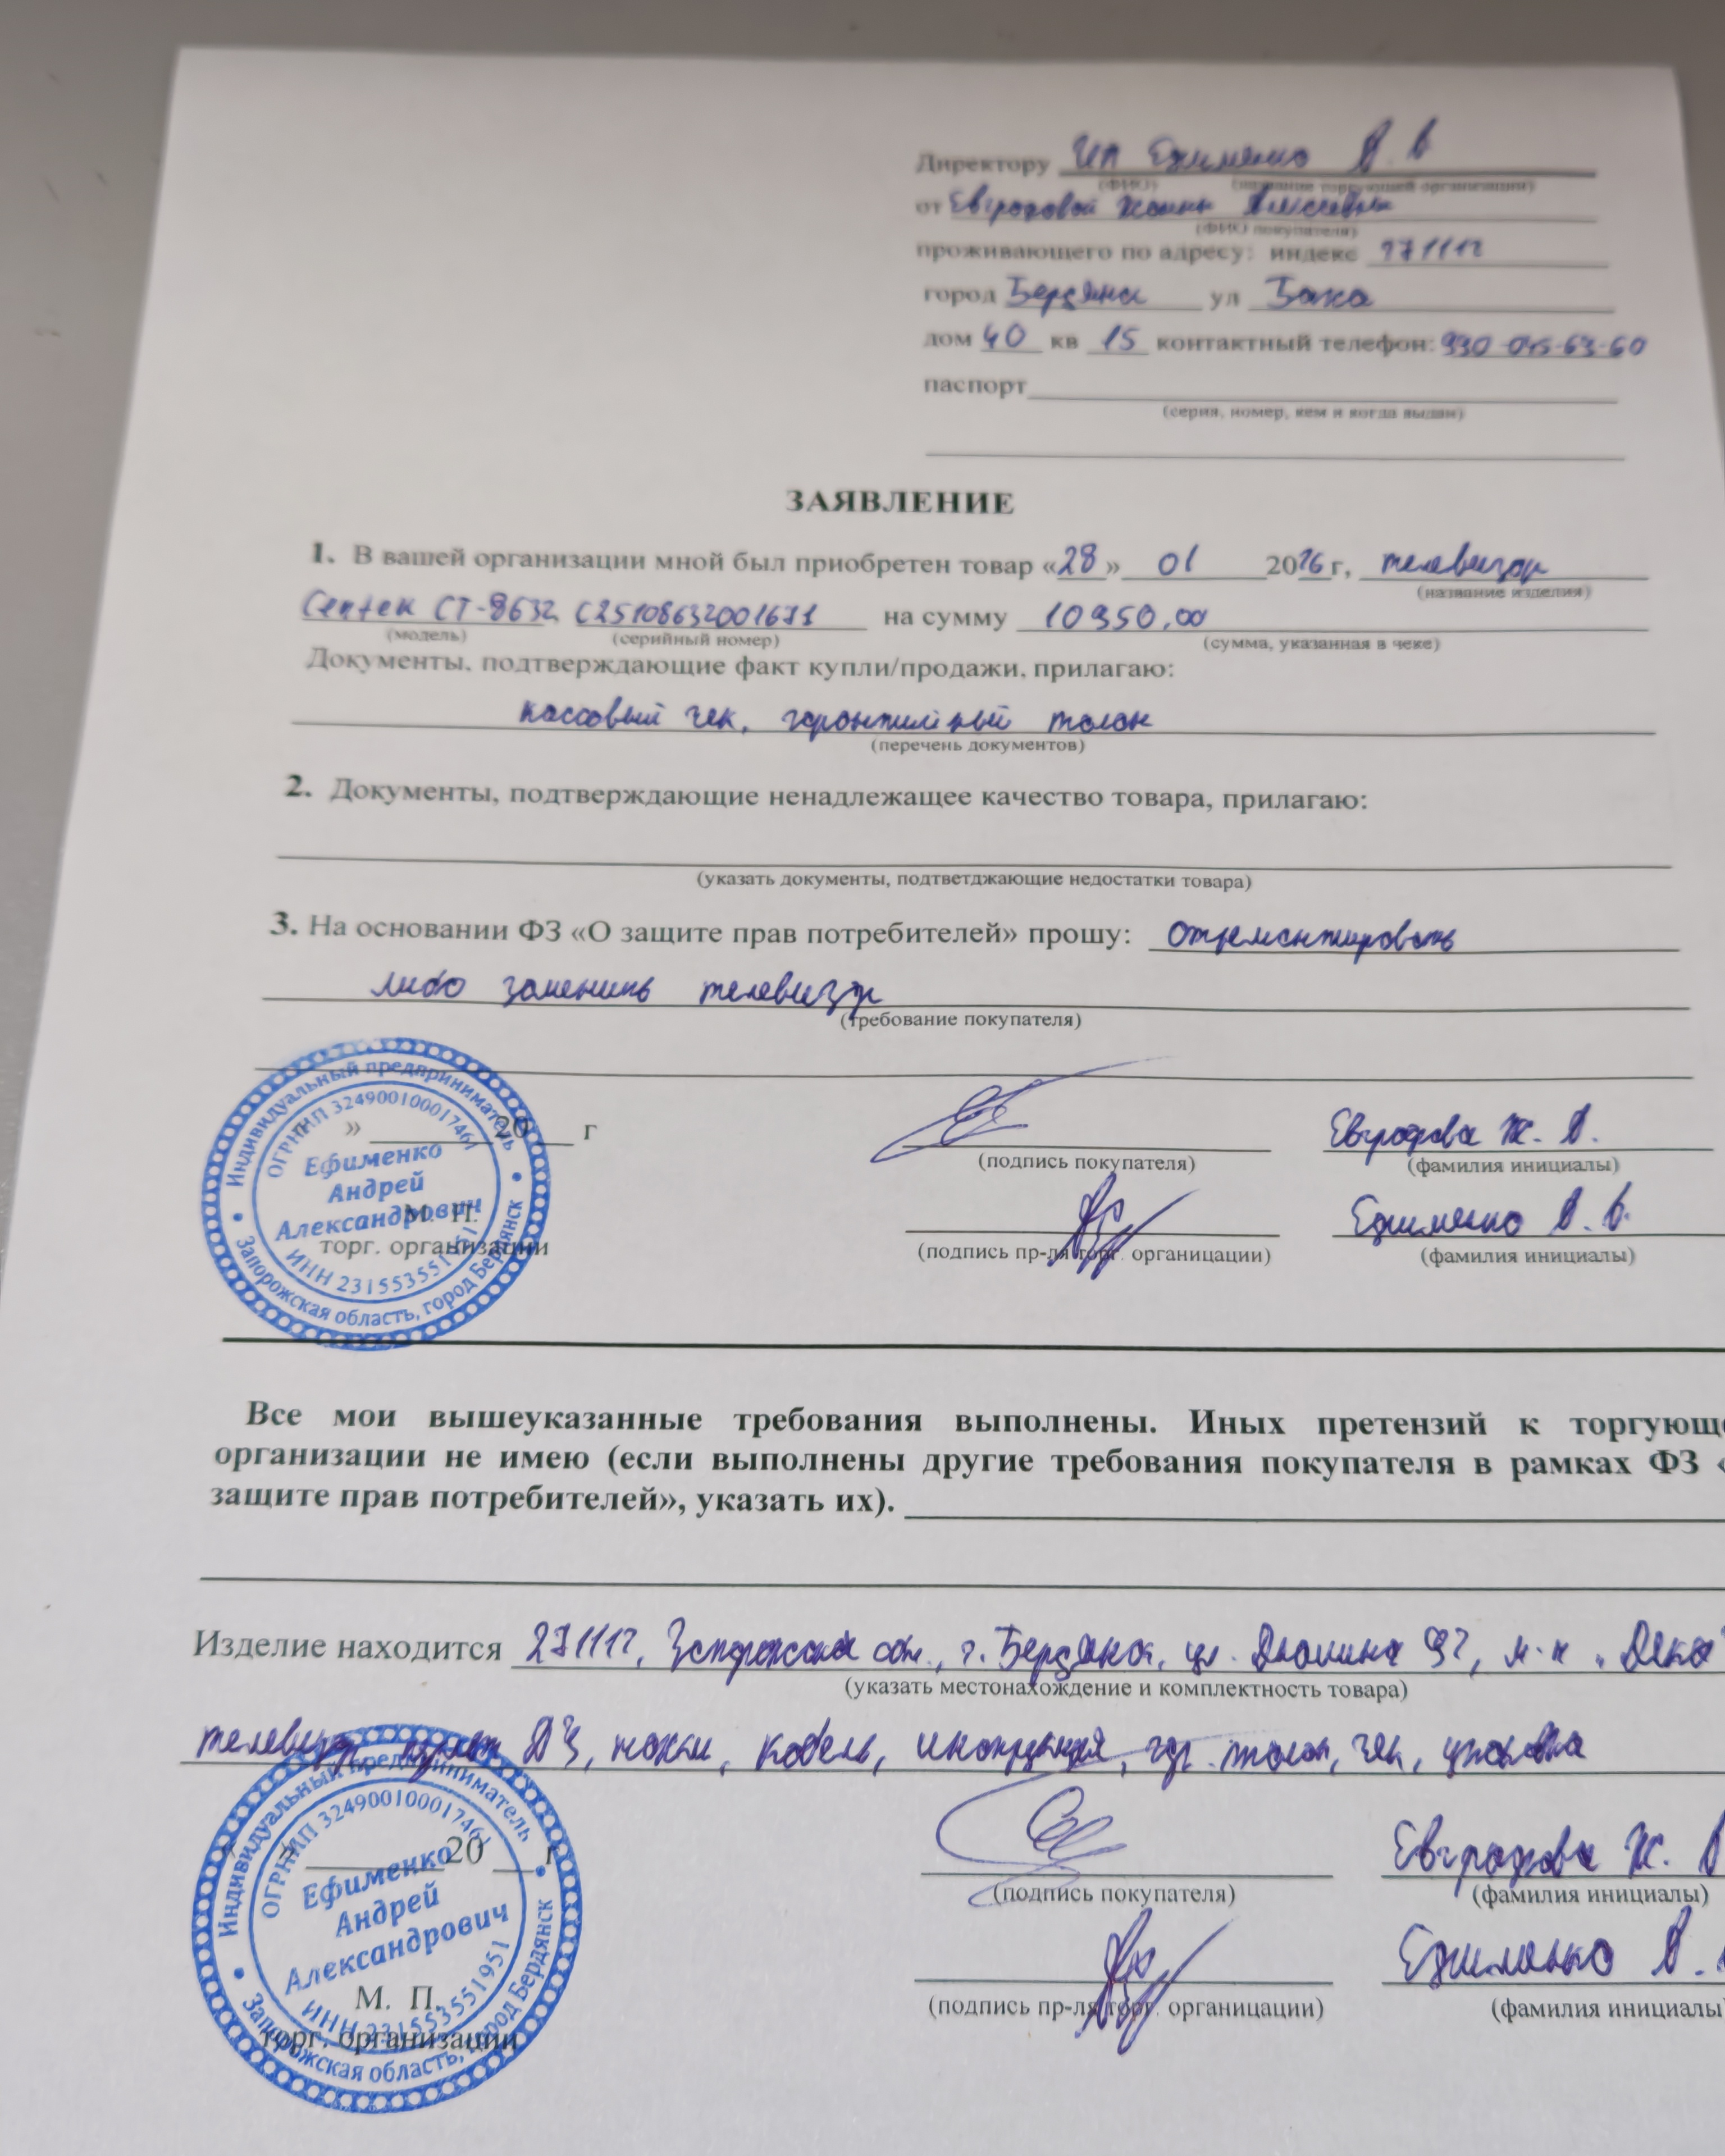 Директору ИП Ефименко А. А
(ФИО) (название торгующей организации)
от Евграфовой Жанны Алексеевны
(ФИО покупателя)
проживающего по адресу: индекс 271112
город Бердянск ул Баха
дом 40 кв 15 контактный телефон: 990-045-63-60
паспорт
(серия, номер, кем и когда выдан)
ЗАЯВЛЕНИЕ
1. В вашей организации мной был приобретен товар «28» 01 2026 г, телевизор
(название изделия)
Centek CT-8632 C25108632001671 на сумму 10950,00
(модель) (серийный номер) (сумма, указанная в чеке)
Документы, подтверждающие факт купли/продажи, прилагаю:
кассовый чек, гарантийный талон
(перечень документов)
2. Документы, подтверждающие ненадлежащее качество товара, прилагаю:
(указать документы, подтветджающие недостатки товара)
3. На основании ФЗ «О защите прав потребителей» прошу: отремонтировать
либо заменить телевизор
(требование покупателя)
Индивидуальный предприниматель
ОГРНИП 324900100017461
Ефименко
Андрей
Александрович
ИНН 231553551951
Запорожская область, город Бердянск
» 20 г
М. П.
торг. организации
Евграфова Ж. А.
(подпись покупателя) (фамилия инициалы)
Ефименко А. А.
(подпись пр-ля торг. органицации) (фамилия инициалы)
Все мои вышеуказанные требования выполнены. Иных претензий к торгующе
организации не имею (если выполнены другие требования покупателя в рамках ФЗ «
защите прав потребителей», указать их).
Изделие находится 271112, Запорожская обл., г. Бердянск, ул. 92, м-н "Дека"
(указать местонахождение и комплектность товара)
телевизор, пульт ДУ, ножки, кабель, инструкция, гар. талон, чек, упаковка
Индивидуальный предприниматель
ОГРНИП 324900100017461
Ефименко
Андрей
Александрович
ИНН 231553551951
Запорожская область, город Бердянск
« » 20 г
М. П.
торг. организации
Евграфова Ж. А
(подпись покупателя) (фамилия инициалы)
Ефименко А.
(подпись пр-ля торг. органицации) (фамилия инициалы